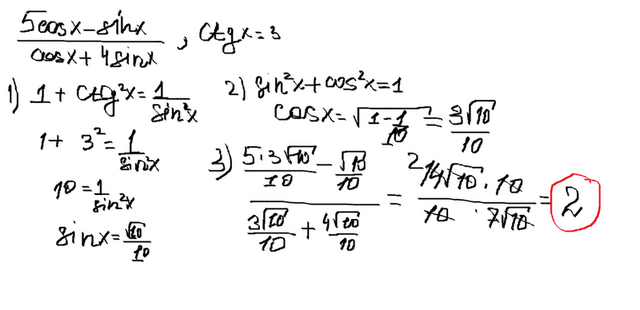 (5cosx-sinx)/(cosx+4sinx), ctgx=3
1) 1+ctg²x=1/sin²x
1+3²=1/sin²x
10=1/sin²x
sinx=√10/10
2) sin²x+cos²x=1
cosx=√(1-1/10)=3√10/10
3) (5·3√10/10-√10/10)/(3√10/10+4√10/10)=(²14√10·10)/(10·7√10)=2